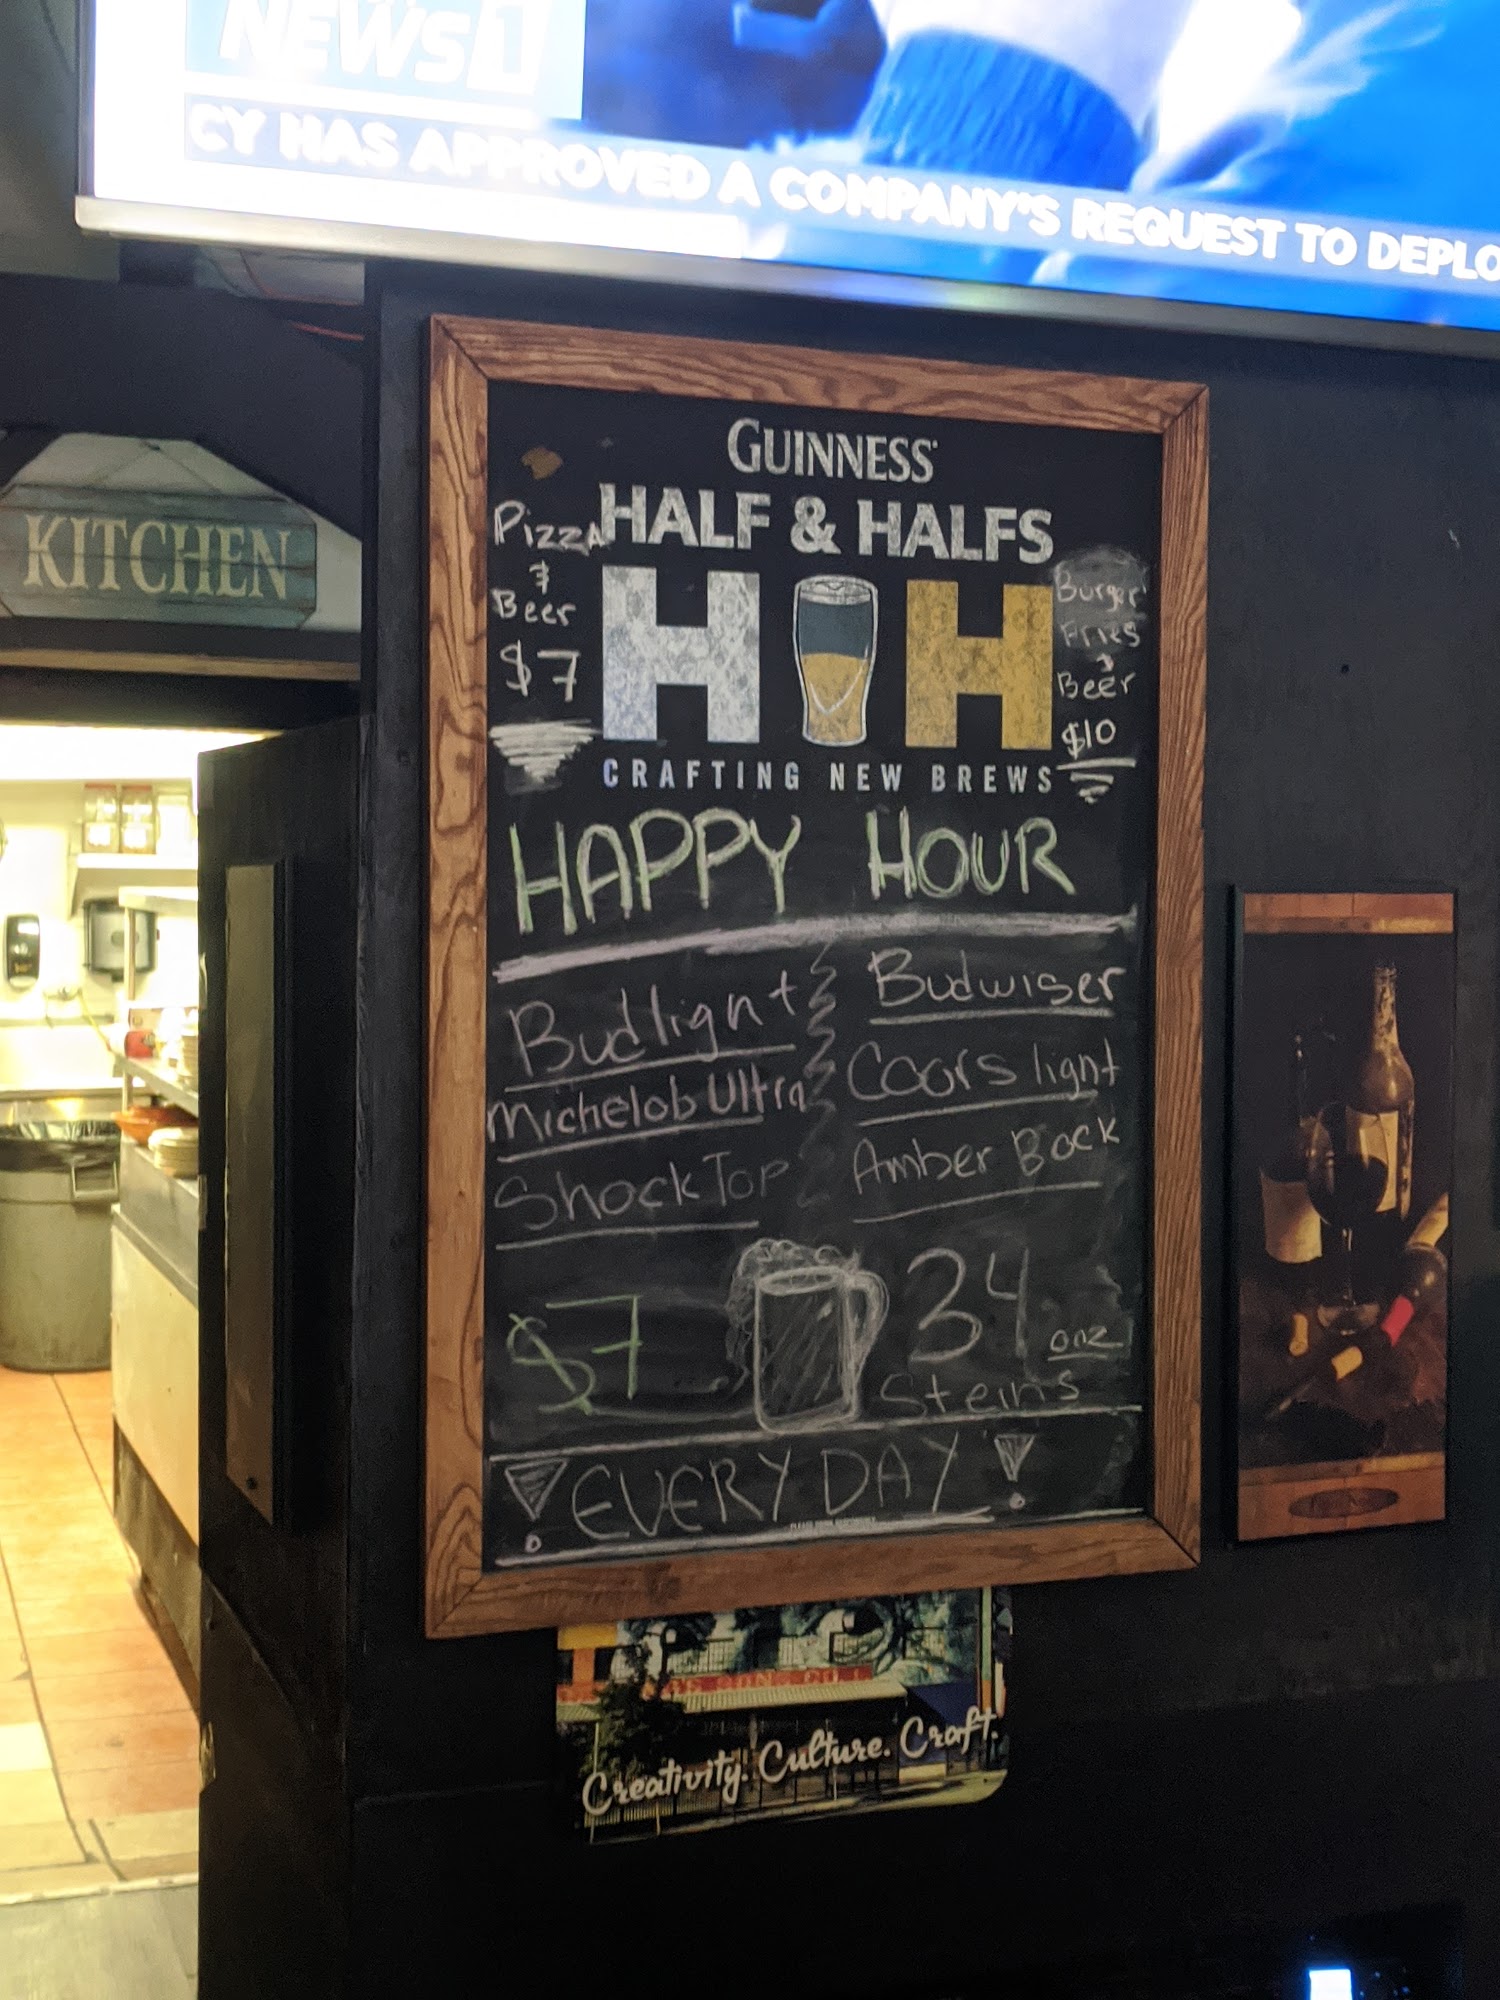 NEWS1
CY HAS APPROVED A COMPANY'S REQUEST TO DEPLO
KITCHEN
GUINNESS
HALF & HALFS
H H
CRAFTING NEW BREWS
Pizza
&
Beer
$7
Burger
Fries
&
Beer
$10
HAPPY HOUR
Bud light
Budwiser
Michelob Ultra
Coors light
Shock Top
Amber Bock
$7
34 onz
Steins
EVERY DAY
Creativity. Culture. Craft.